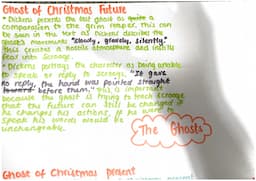 Ghost of Christmas Future
• Dickens presents the last ghost as quite a
comparison to the grim reaper. This can
be seen in the text as Dickens describes the
ghost's movements "slowly, gravely, silently"
This creates a hostile atmosphere and instills
fear into Scrooge.
• Dickens portrays the character as being unable
to speak or reply to Scrooge, "It gave
no reply, the hand was pointed straight
toward before them," this is important
because the ghost is trying to teach Scrooge
that the future can still be changed if
he changes his actions, if he were to
speak his words would be
unchangeable.
The Ghosts
Ghost of Christmas present